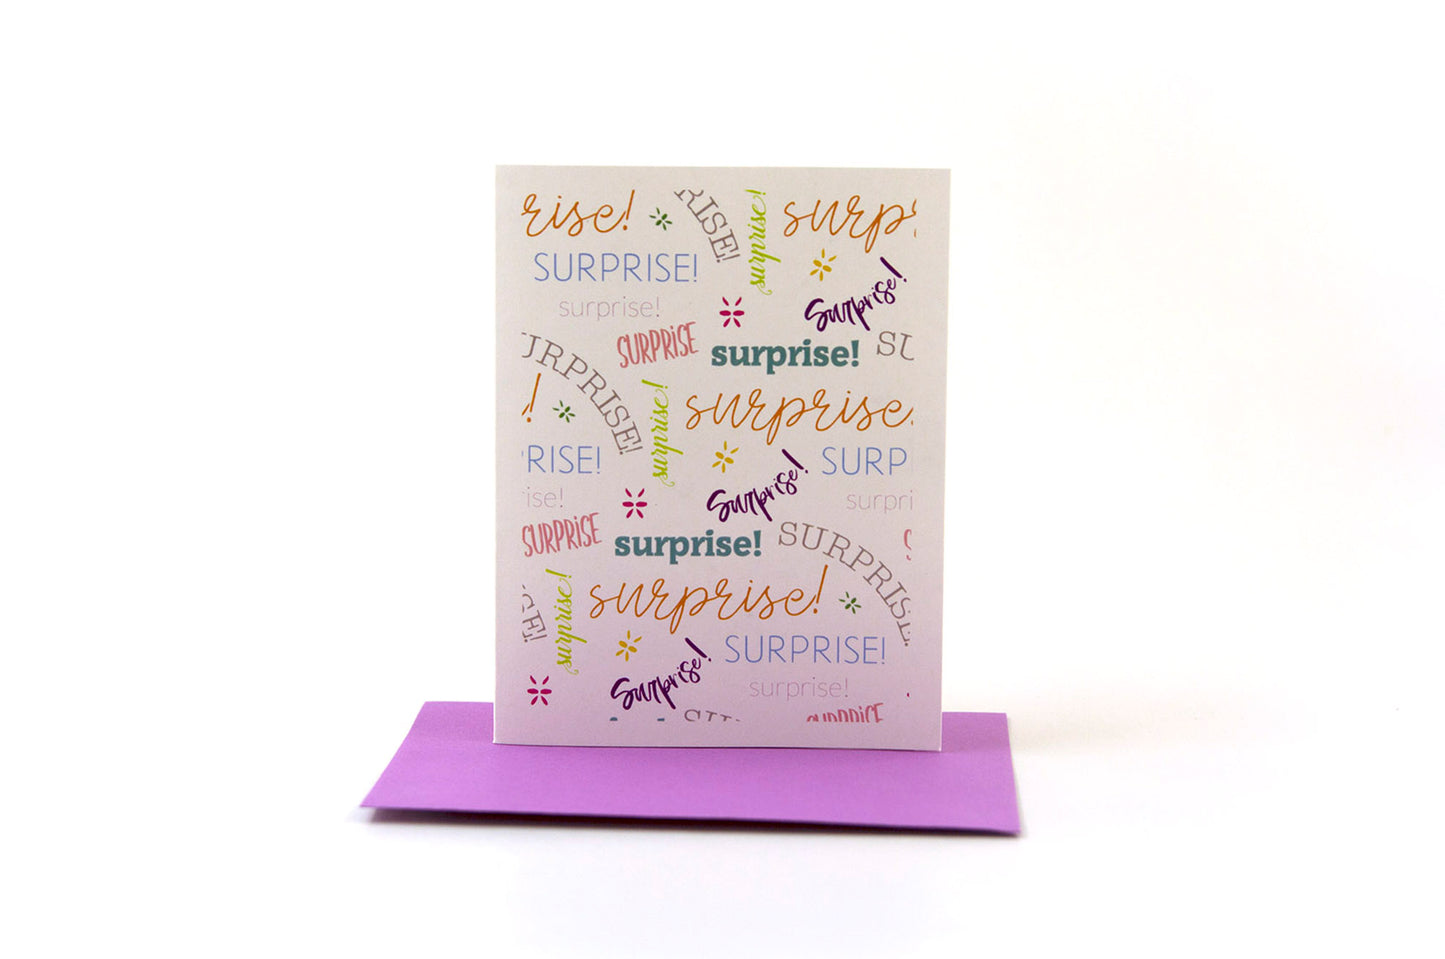 rise! RISE! surprise! surpr
SURPRISE!
surprise! Surprise!
SURPRISE surprise! SU
URPRISE! surprise! surprise
!
RISE! Surprise! SURP
ise! surpri
SURPRISE surprise! SURPRISE
S
SE! surprise! surprise!
Surprise! SURPRISE!
surprise!
SU SURPRISE